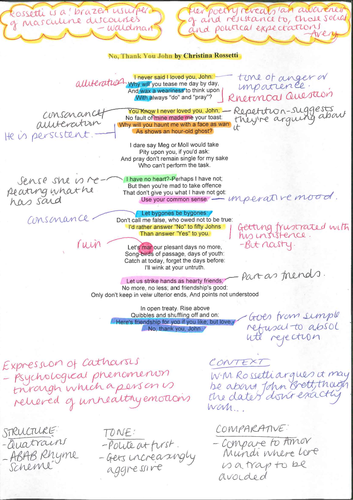 Rossetti is a "brazen usurper
of masculine discourses"
- Waldman
Her poetry reveals "an awareness
of and resistance to, those social
and political expectations"
- Avery
No, Thank You John by Christina Rossetti
I never said I loved you, John:
Why will you tease me day by day,
And wax a weariness to think upon
With always "do" and "pray"?
alliteration
tone of anger or
impatience.
Rhetorical Question
You know I never loved you, John;
No fault of mine made me your toast:
Why will you haunt me with a face as wan
As shows an hour-old ghost?
consonance/
alliteration
He is persistent.
Repetition - suggests
they're arguing about
it
I dare say Meg or Moll would take
Pity upon you, if you'd ask:
And pray don't remain single for my sake
Who can't perform the task.
I have no heart?-Perhaps I have not;
But then you're mad to take offence
That don't give you what I have not got:
Use your common sense
Sense she is re-
peating what he
has said
imperative mood.
Let bygones be bygones:
Don't call me false, who owed not to be true:
I'd rather answer "No" to fifty Johns
Than answer "Yes" to you.
consonance
Getting frustrated with
his insistence
- But nasty
Let's mar our plesant days no more,
Song-birds of passage, days of youth:
Catch at today, forget the days before:
I'll wink at your untruth.
ruin
Let us strike hands as hearty friends;
No more, no less, and friendship's good:
Only don't keep in veiw ulterior ends, And points not understood
Part as friends.
In open treaty. Rise above
Quibbles and shuffling off and on:
Here's friendship for you if you like; but love,
No, thank you, John.
Goes from simple
refusal to absol
ute rejection
Expression of Catharsis
- Psychological phenomenon
through which a person is
relieved of unhealthy emotions
CONTEXT
W.M Rossetti argues it may
be about John Brett though
the dates don't exactly
work...
STRUCTURE:
- Quatrains
- ABAB Rhyme
Scheme
TONE:
- Polite at first.
- Gets increasingly
aggressive
COMPARATIVE:
- Compare to Amor
Mundi where love
is a trap to be
avoided